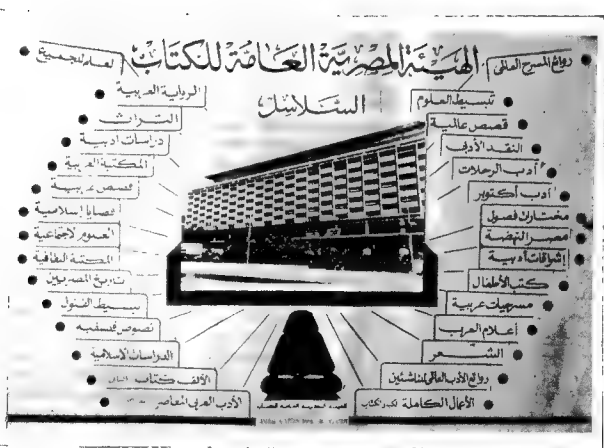 الهيئة المصرية العامة للكتاب
السلاسل
روائع المسرح العالمى
تبسيط العلوم
قصص عالمية
النقد الأدبى
أدب الرحلات
أدب أكتوبر
مختارات فصول
مصر النهضة
إشراقات أدبية
كتب الأطفال
مسرحيات عربية
أعلام العرب
الشعر
روائع الأدب العالمى للناشئين
الأعمال الكاملة
العلم للجميع
الرواية العربية
التراث
دراسات أدبية
المكتبة العربية
قصص عربية
قضايا إسلامية
العلوم الاجتماعية
المكتبة الثقافية
تاريخ المصريين
تبسيط الفنون
نصوص فلسفية
الدراسات الإسلامية
الألف كتاب
الأدب العربى المعاصر